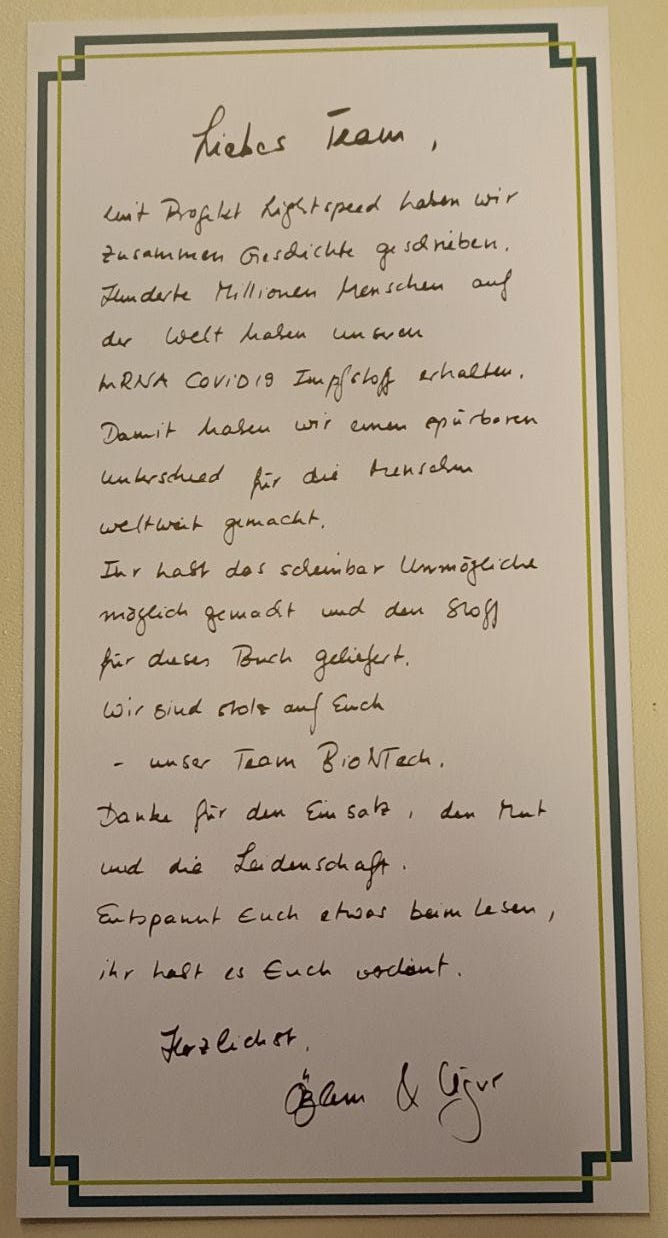 Liebes Team,
mit Projekt Lightspeed haben wir
zusammen Geschichte geschrieben.
Hunderte Millionen Menschen auf
der Welt haben unseren
mRNA COVID19 Impfstoff erhalten.
Damit haben wir einen spürbaren
Unterschied für die Menschen
weltweit gemacht.
Ihr habt das scheinbar Unmögliche
möglich gemacht und den Stoff
für dieses Buch geliefert.
Wir sind stolz auf Euch
- unser Team BioNTech.
Danke für den Einsatz, den Mut
und die Leidenschaft.
Entspannt Euch etwas beim Lesen,
ihr habt es Euch verdient.
Herzlichst,
Özlem & Uğur